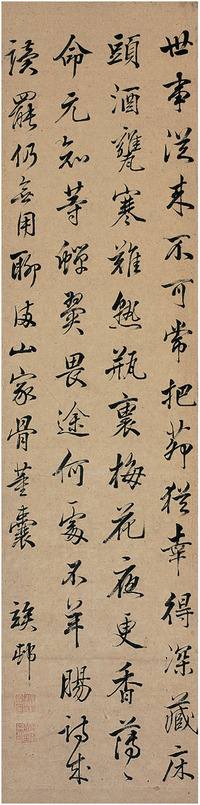 世事從來不可常把茆猶幸得深藏床
頭酒甕寒難熟瓶裏梅花夜更香薄
命元知等蟬翼畏途何處不羊腸詩成
讀罷仍無用聊山家骨董囊 邨